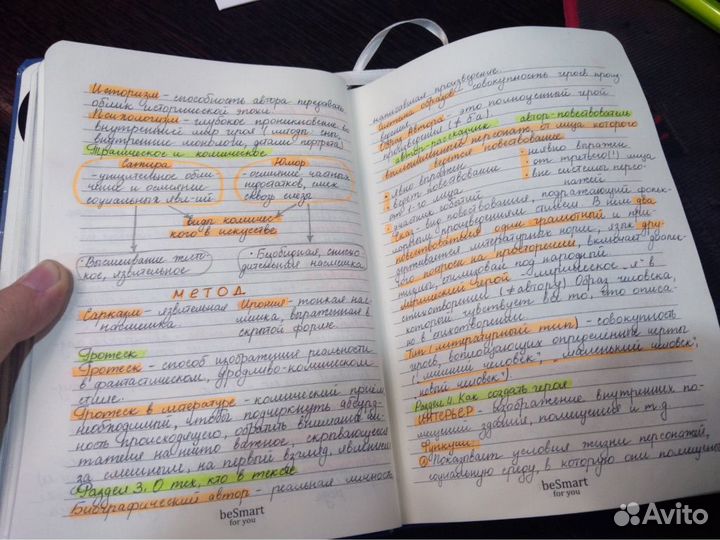 Историзм - способность автора передавать
облик исторической эпохи
Психологизм - глубокое проникновение во
внутренний мир героя (методы: сны,
внутренние монологи, детали портрета)
Трагическое и комическое
Сатира
- уничтожительное обли
чение и осмеяние
социальных явл-ий
Юмор
- осмеяние частных
недостатков, смех
сквозь слезы
виды комичес-
кого в искусстве
• Высмеивание жест-
кое, язвительное
• Безобидная, снисхо
дительная насмешка
МЕТОД
Сарказм - язвительная
насмешка
Ирония - тонкая нас-
мешка, выраженная в
скрытой форме
Гротеск
Гротеск - способ изображения реальности
в фантастическом, уродливо-комическом
стиле.
Гротеск в литературе - комический приём
необходимый, чтобы подчеркнуть абсурд-
ность происходящего, обратить внимание чи-
тателя на нечто важное, скрывающееся
за смешным, на первый взгляд, явлением
Раздел 3. О тех, кто в тексте
Биографический автор - реальная личность
beSmart
for you
написавшая произведение.
Система образов - совокупность героев произ
ведения
Образ Автора - это полноценный герой
произведения (≠ б.а.)
автор-рассказчик
автор-повествователь
персонаж, от лица которого
ведется повествование
• явно выражен
• ведет повествование
от 1-го лица
• участник событий
• неявно выражен
• от третьего(!) лица
• вне системы персо-
нажей
Сказ - вид повествования, подражающий фольк-
лорным произведениям стилем. В нём два
повествователя: один грамотный и при-
держивается литературных норм, язык дру-
гого похож на просторечие, включает
под народной
Лирический герой - лирическое "я" в
стихотворении (≠ автору) Образ человека,
который чувствует все то, что описа-
но в стихотворении
Тип (литературный тип) - совокупность
героев, воплощающих определенные черты
("лишний человек", "маленький человек",
"новый человек")
Раздел 4. Как создать героя
ИНТЕРЬЕР - изображение внутренних по-
мещений здания, помещения и т.д
Функции:
Показывает условия жизни персонажей,
социальную среду, в которую они помещены
beSmart
for you
Avito